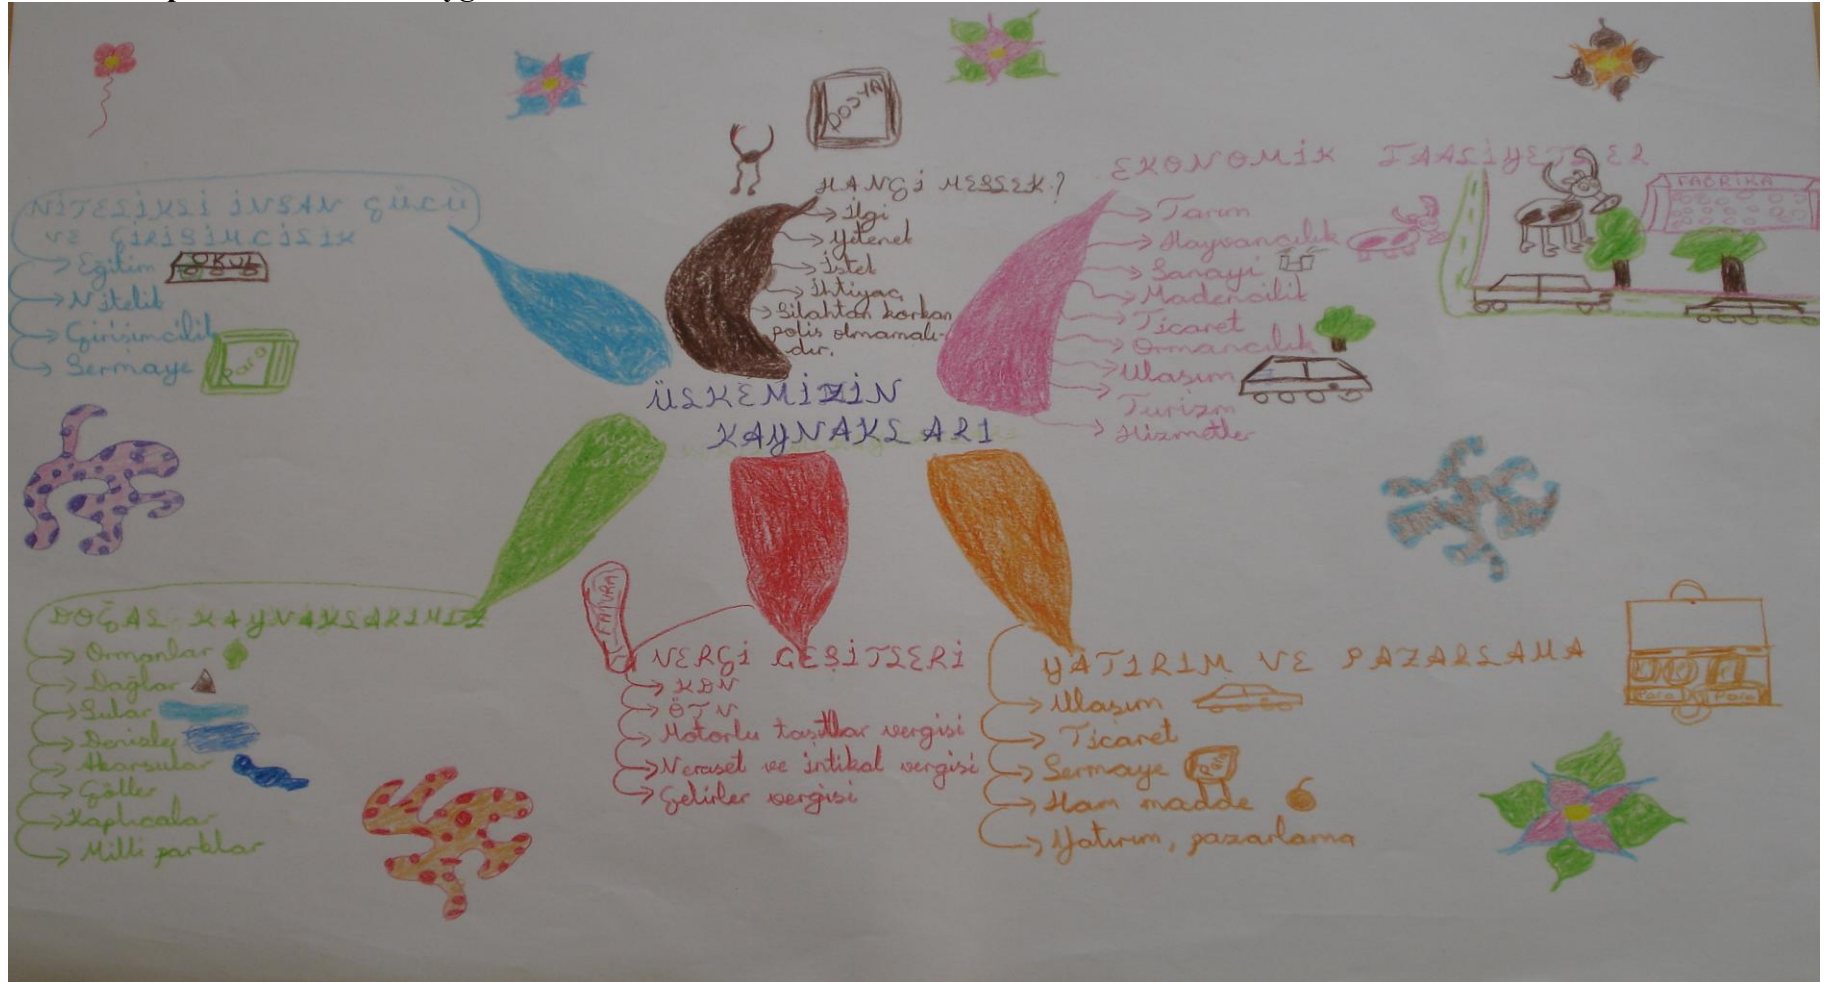 DOSYA
NİTELİKLİ İNSAN GÜCÜ
VE GİRİŞİMCİLİK
Eğitim
OKUL
Nitelik
Girişimcilik
Sermaye
Para
HANGİ MESLEK?
İlgi
Yetenek
İstek
İhtiyaç
Silahtan korkan
polis olmamalı-
dır.
EKONOMİK FAALİYETLER
Tarım
Hayvancılık
Sanayi
Madencilik
Ticaret
Ormancılık
Ulaşım
Turizm
Hizmetler
FABRİKA
ÜLKEMİZİN
KAYNAKLARI
DOĞAL KAYNAKLARIMIZ
Ormanlar
Dağlar
Sular
Denizler
Akarsular
Göller
Kaplıcalar
Milli parklar
FATURA
VERGİ ÇEŞİTLERİ
KDV
ÖTV
Motorlu taşıtlar vergisi
Veraset ve intikal vergisi
Gelirler vergisi
YATIRIM VE PAZARLAMA
Ulaşım
Ticaret
Sermaye
Para
Ham madde
Yatırım, pazarlama
Para
Para